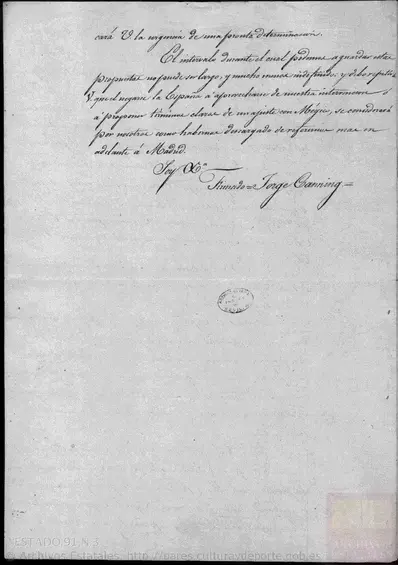 cará V la urgencia de una pronta determinacion.
El intervalo durante el cual podemos aguardar estas
propuestas no puede ser largo, y mucho menos indefinido; y debo repetir á
V. que el negarse la España á aprovecharse de nuestra intervencion ó
á proponer términos claros de un ajuste con Mégico, se considerará
por nosotros como habernos descargado de referirnos mas en
adelante á Madrid.
Soy &a
Firmado = Jorge Canning =
ESTADO, 91, N.3
© Archivos Estatales, http://pares.culturaydeporte.gob.es